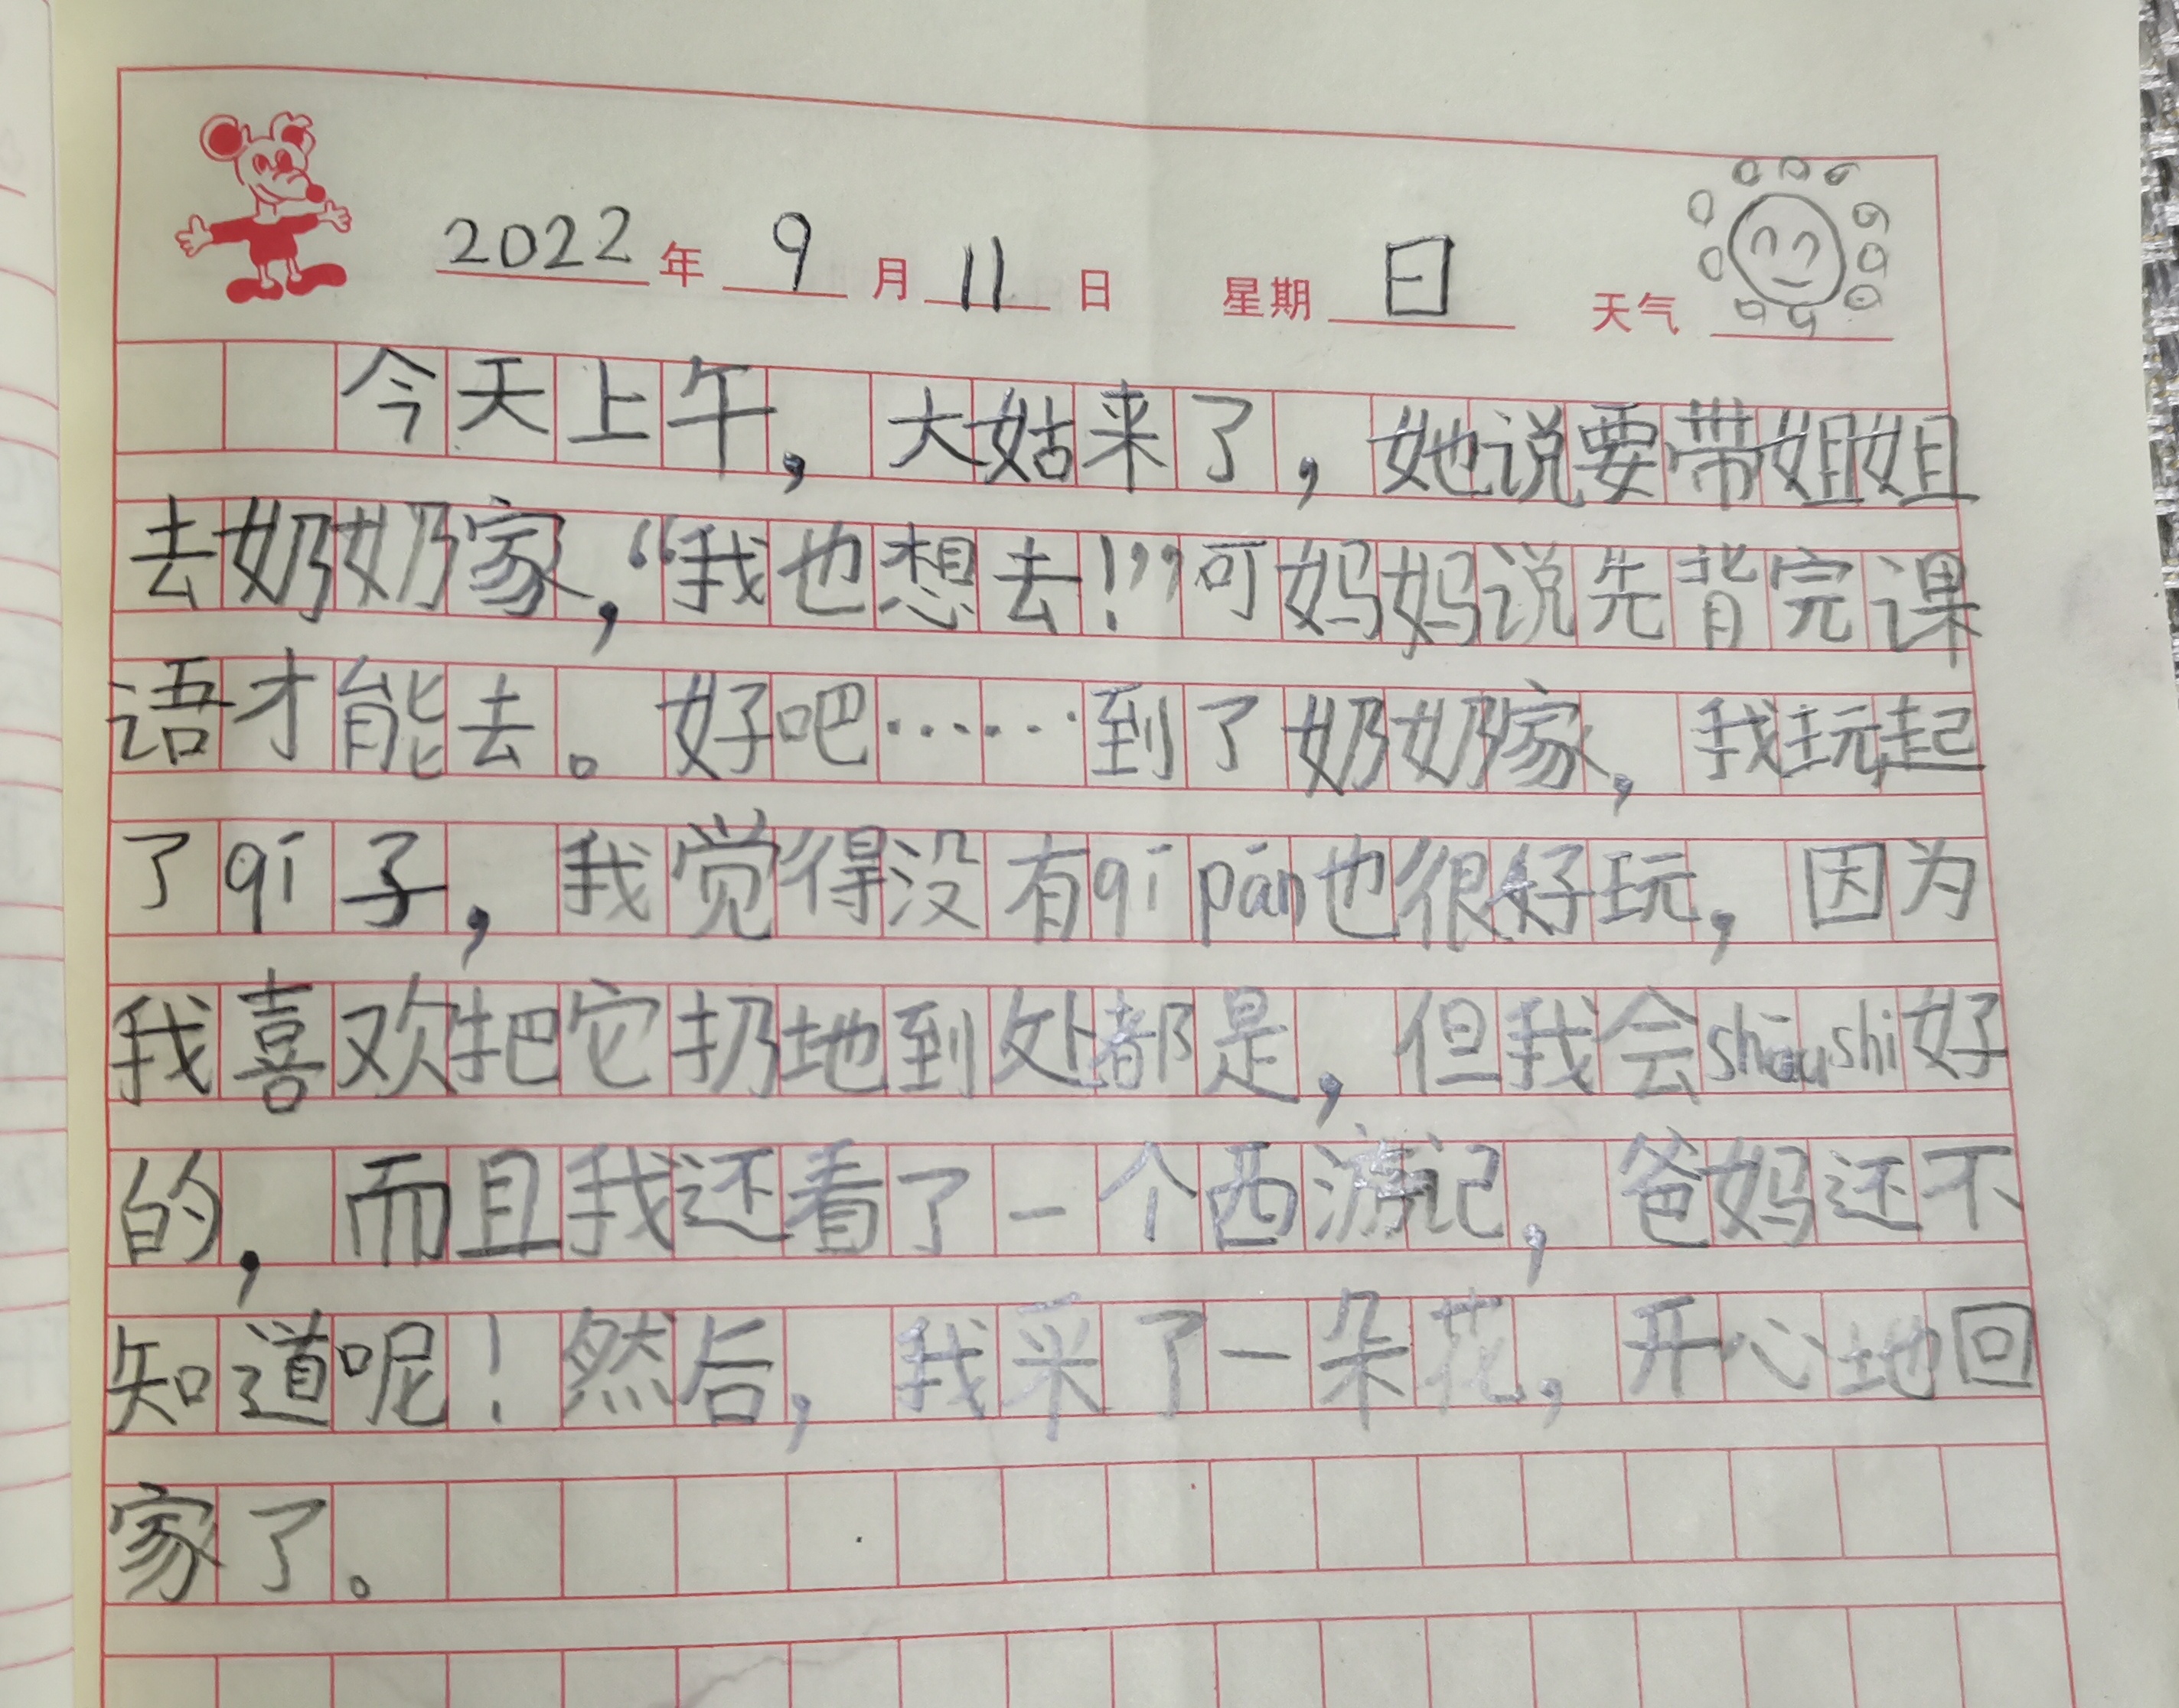 2022年 9月11日 星期日 天气
今天上午，大姑来了，她说要带姐姐
去奶奶家，“我也想去！”可妈妈说先背完课
语才能去。好吧……到了奶奶家，我玩起
了qí子，我觉得没有qí pán也很好玩，因为
我喜欢把它扔地到处都是，但我会shōushi好
的，而且我还看了一个西游记，爸妈还不
知道呢！然后，我采了一朵花，开心地回
家了。